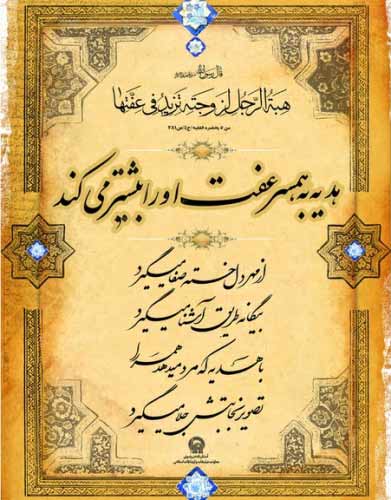 قال رسول الله
هبة الرجل لزوجته تزید فی عفتها
هدیه به همسر عفت او را بیشتر می کند
از مهر دل خسته صفا میگیرد
بیگانه طریق آشنا میگیرد
با هدیه که مرد میدهد همسر را
تصویر نجابتش جلا میگیرد